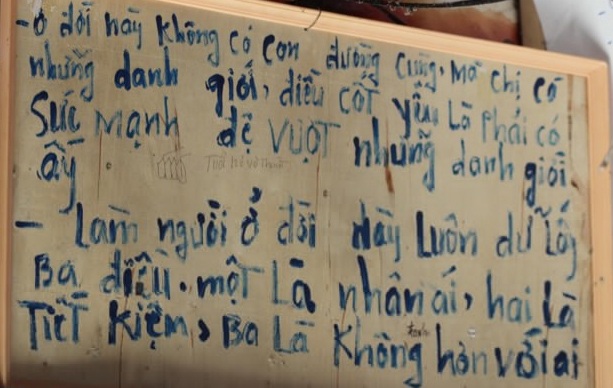 - ở đời này không có con đường cùng, mà chị có
những danh giới, điều cốt yếu là phải có
sức mạnh để vượt những danh giới
ấy
- Làm người ở đời này luôn dữ lấy
Ba điều. một là nhân ái, hai là
Tiết kiệm, Ba là không tranh hơn với ai